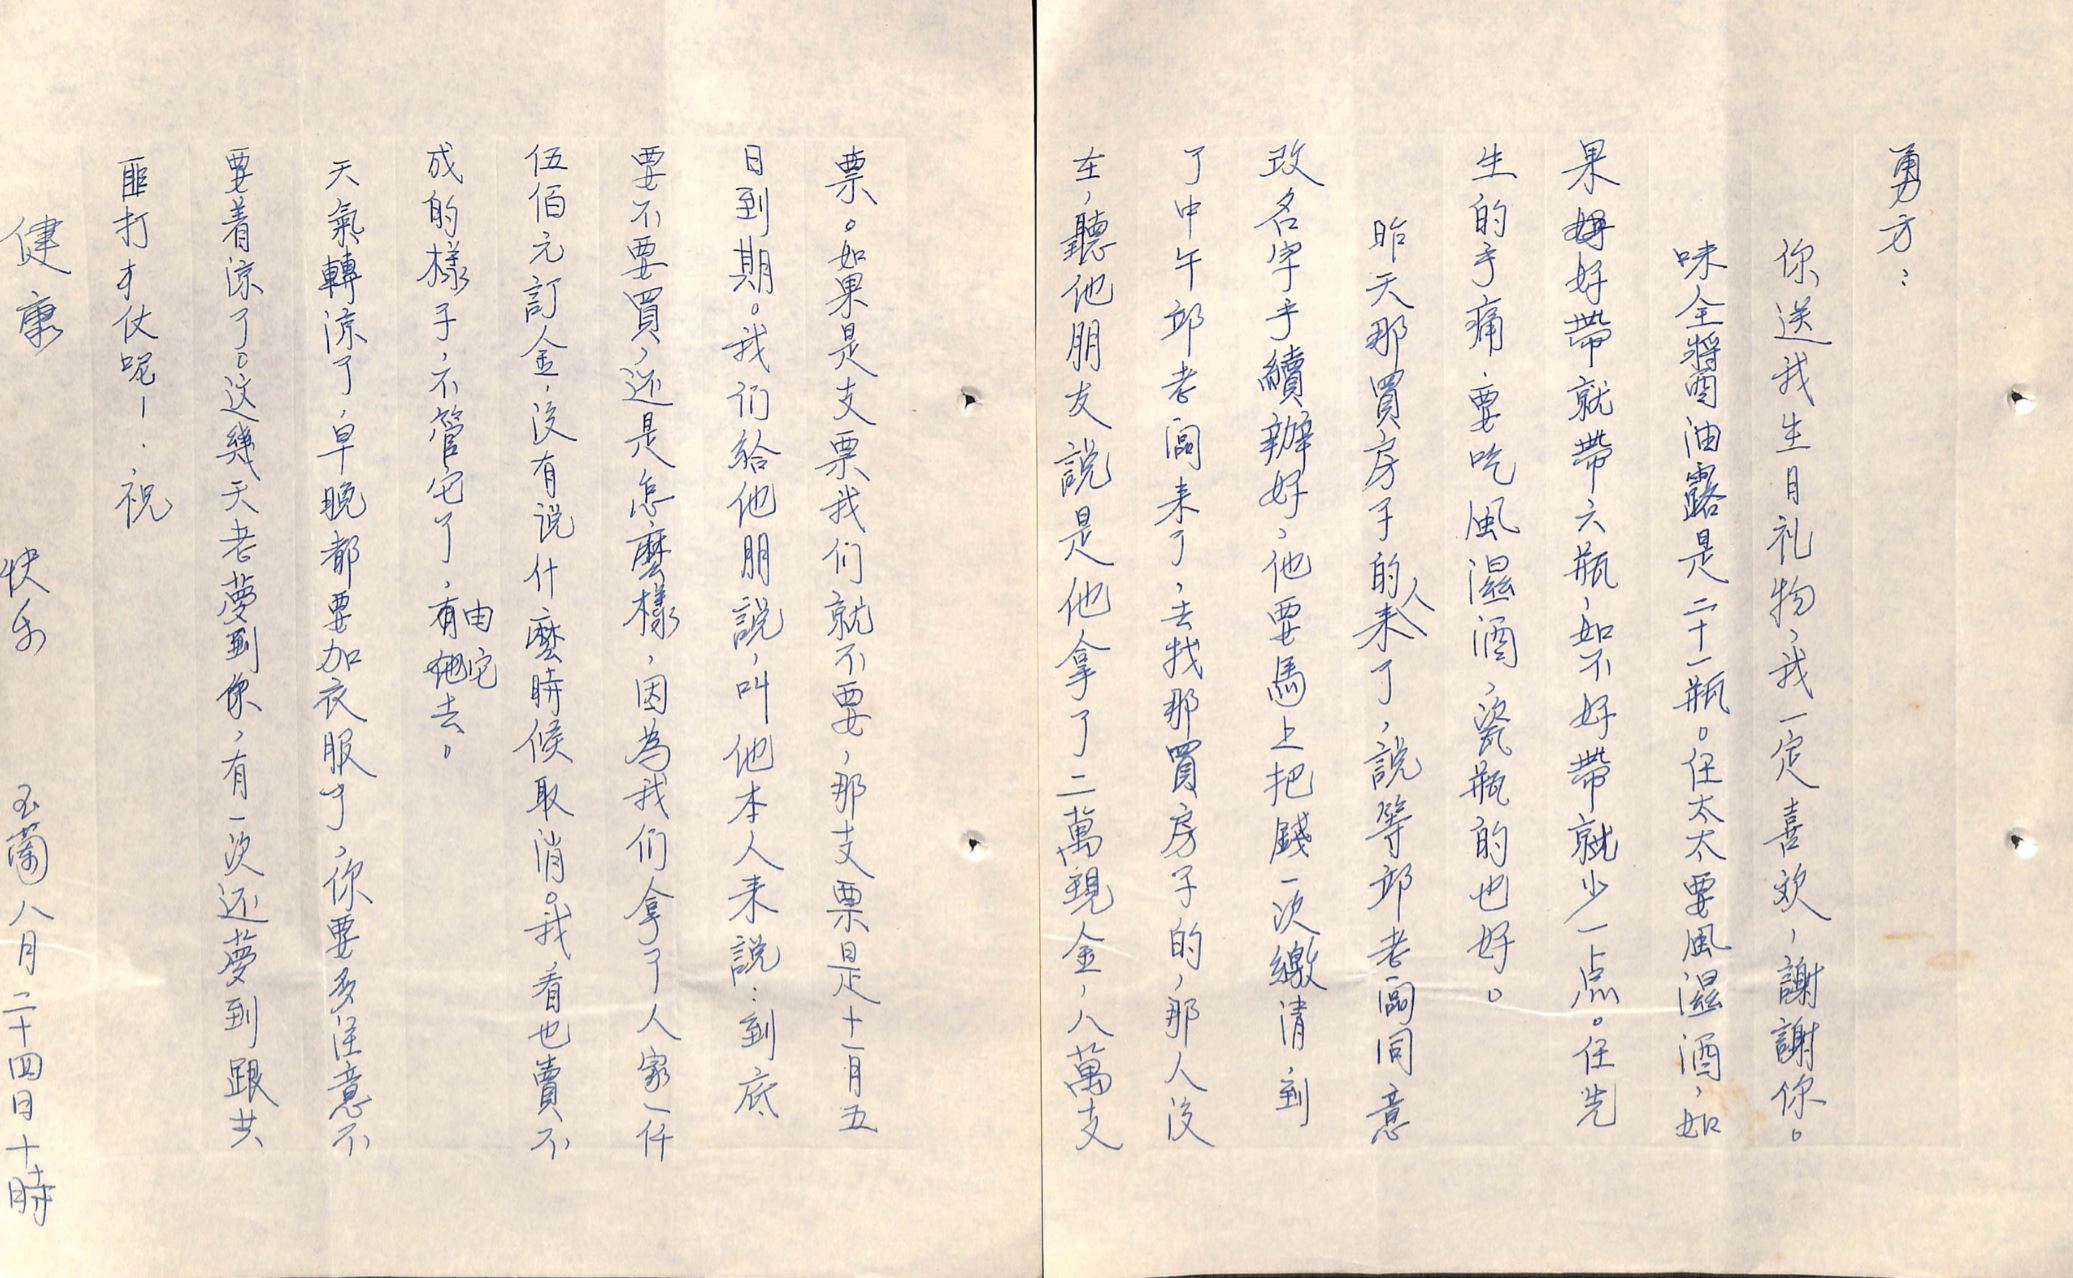 勇方：
你送我生日礼物，我一定喜欢，謝謝你。
味全醬油露是二十一瓶。任太太要風濕酒，如
果好帶就帶六瓶，如不好帶就少一点。任先
生的手痛，要吃風濕酒，瓷瓶的也好。
昨天那買房子的人來了，說等邱老闆同意
改名字手續辦好，他要馬上把錢一次繳清，到
了中午邱老闆来了，去找那買房子的，那人没
在，聽他朋友說是他拿了二萬現金，八萬支
票。如果是支票我们就不要，那支票是十一月五
日到期。我们給他朋說，叫他本人来說：到底
要不要買，还是怎麼樣，因為我们拿了人家一仟
伍佰元訂金，没有说什麼時候取消。我看也賣不
成的樣子，不管它了，由它去。
天氣轉涼了，早晚都要加衣服了，你要多注意不
要着涼了。这幾天老夢到你，有一次还夢到跟共
匪打才仗呢！祝
健康
快乐
玉蘭 八月二十四日十時